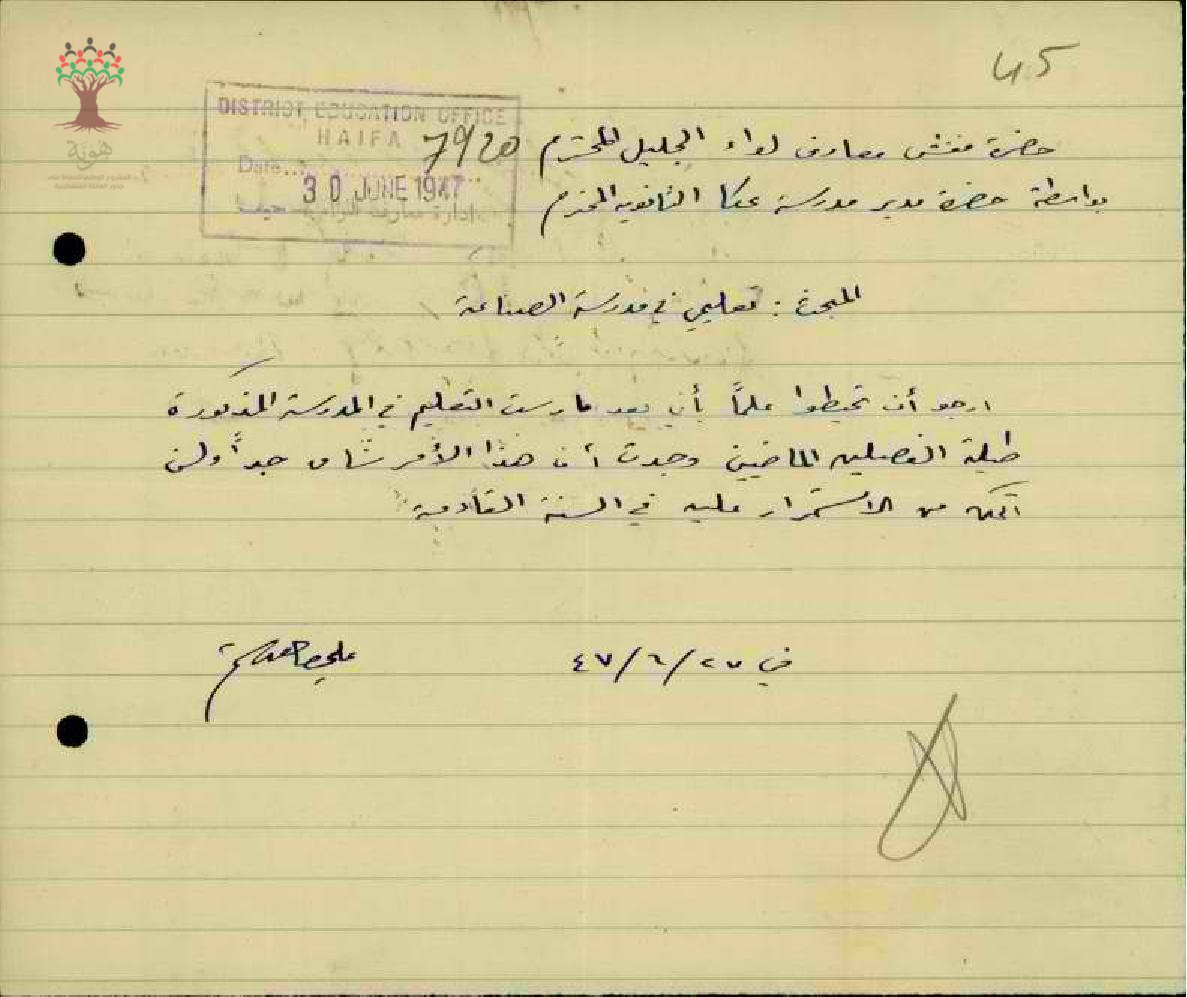 45
DISTRICT EDUCATION OFFICE
HAIFA
7920
Date
30 JUNE 1947
حيفا
هوية
حضرة مفتش معارف لواء الجليل المحترم
بواسطة حضرة مدير مدرسة عكا الثانوية المحترم
المبحث : تعليمي في مدرسة الصناعة
ارجو أن تحيطوا علماً بأني بعد مارست التعليم في المدرسة المذكورة
طيلة الفصلين الماضيين وجدت أن هذا الأمر شاق جداً ولن
اتمكن من الاستمرار عليه في السنة القادمة
في ٢٧/٦/٤٧